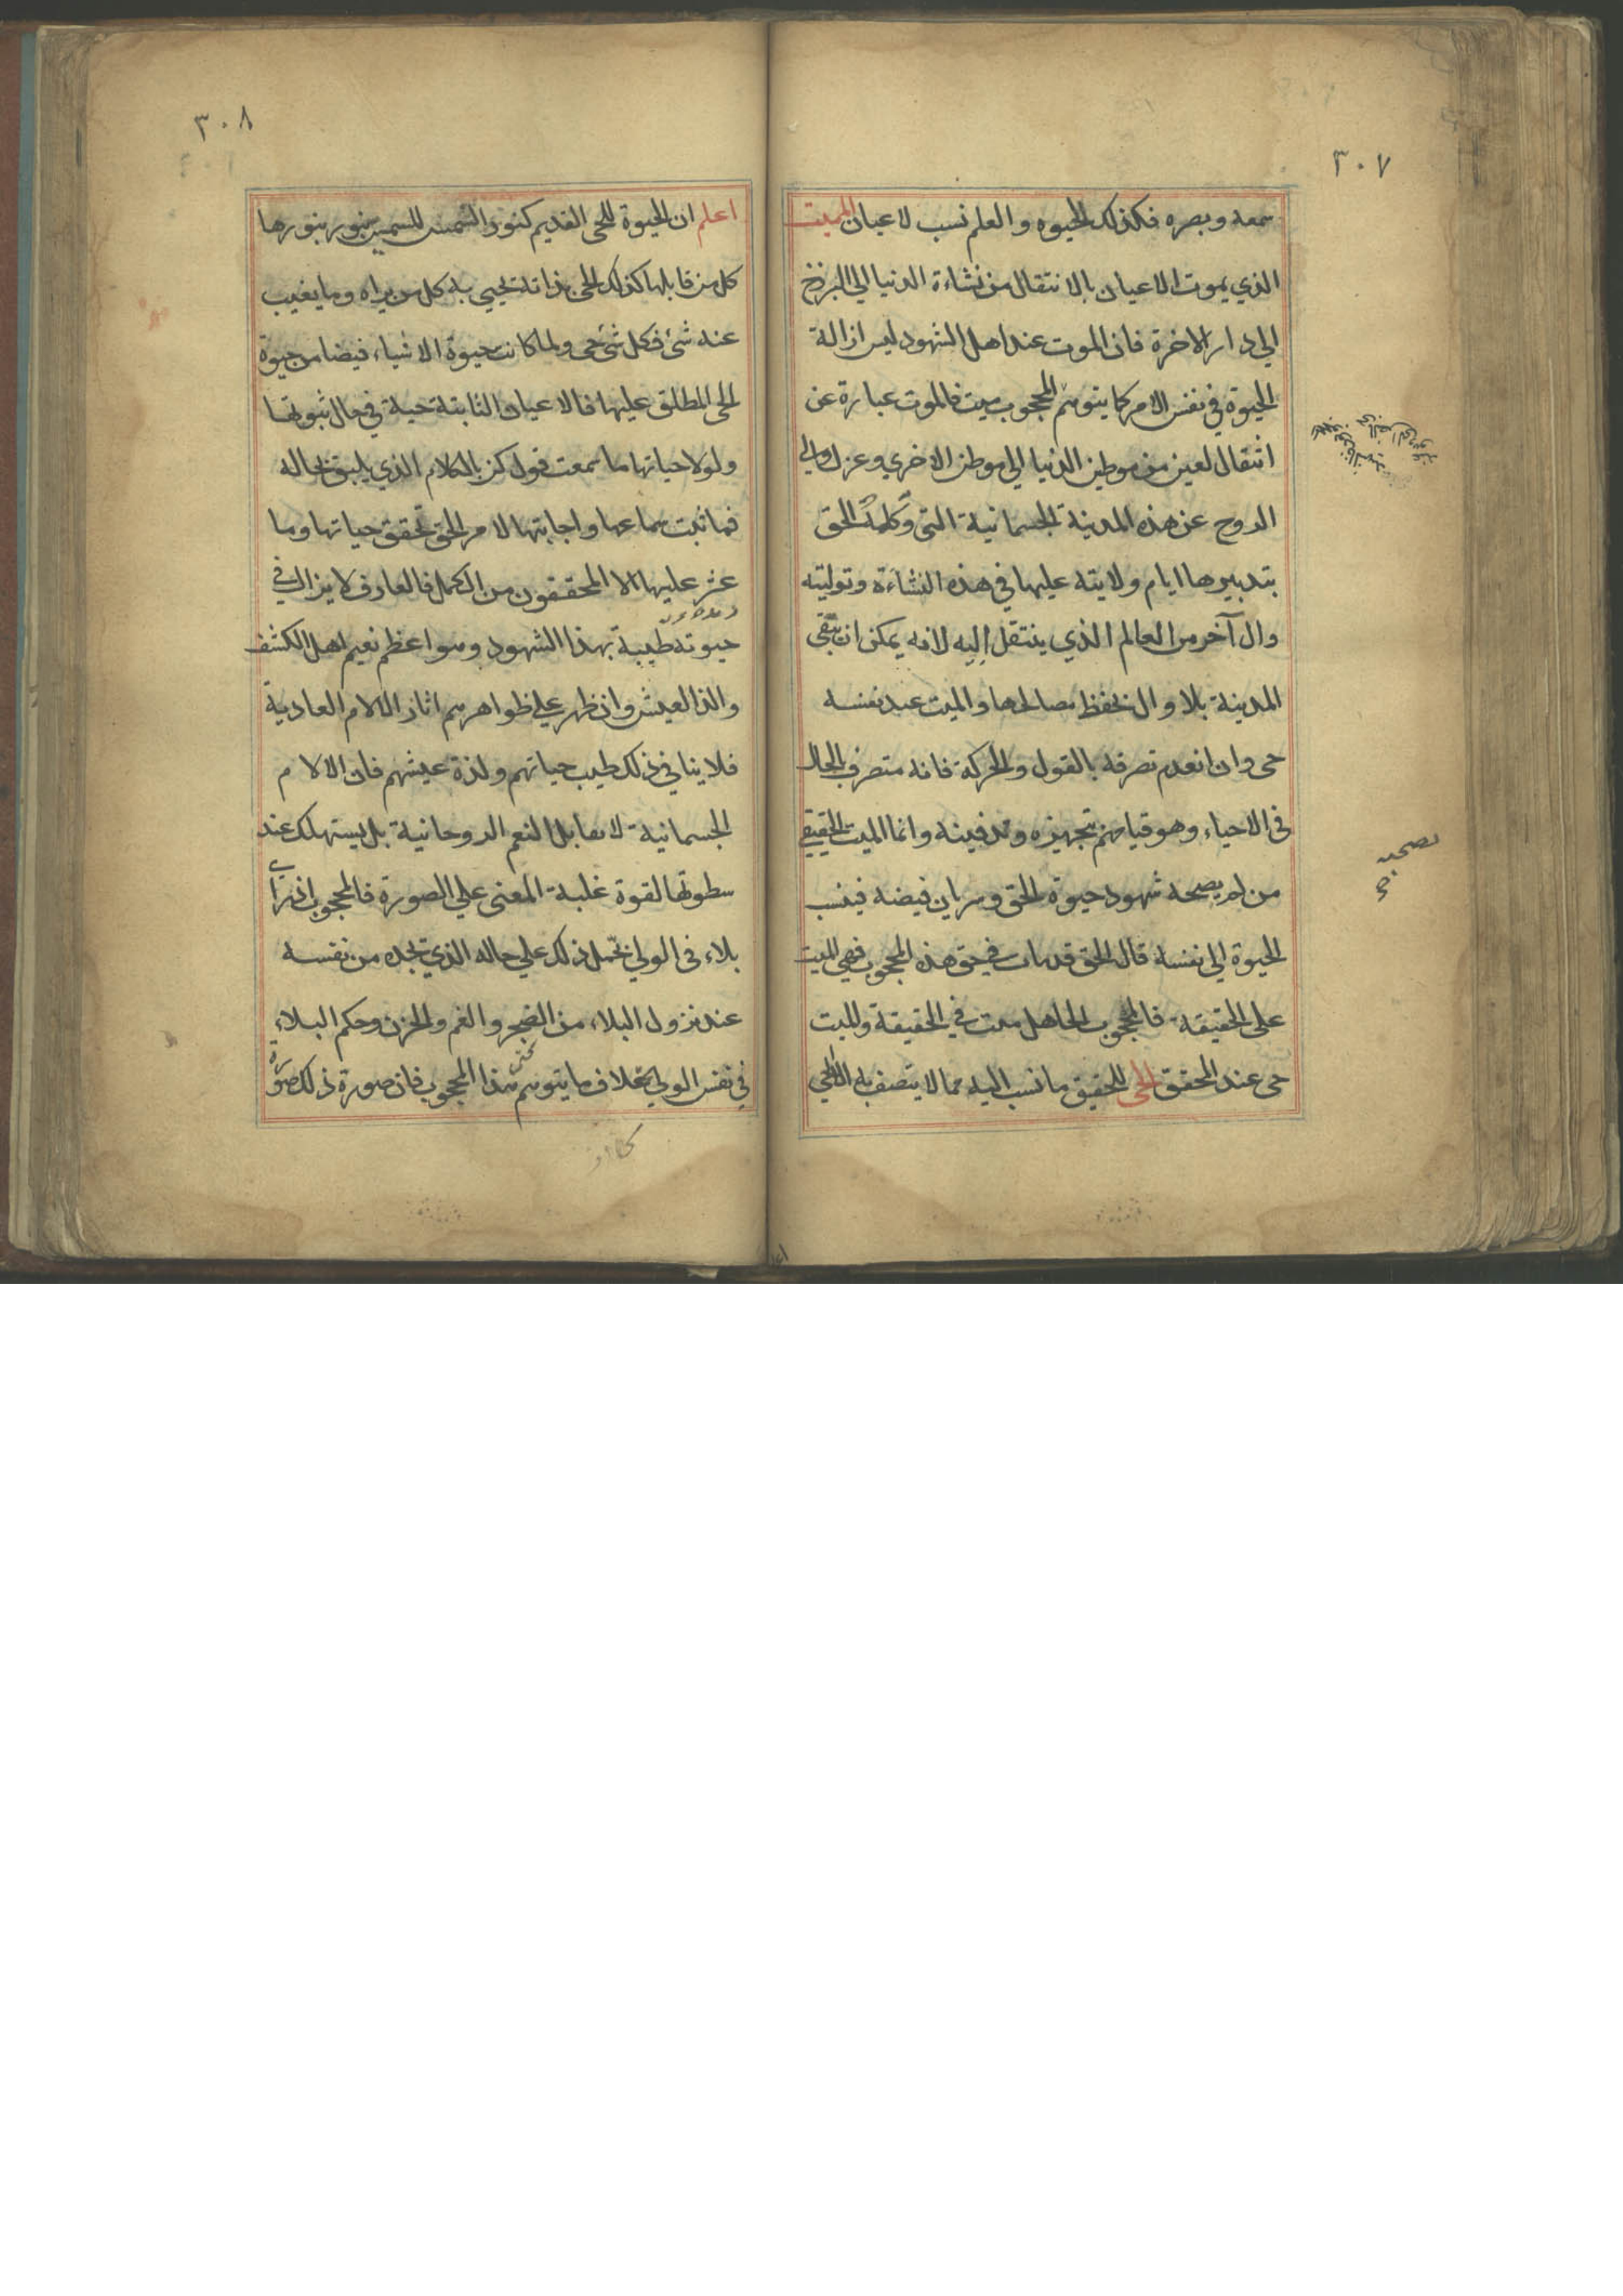 ٣٠٧
سمعه وبصره فكذلك الحيوه والعلم نسب لاعيان المميت
الذي يموت الاعيان بالانتقال من نشاءة الدنيا الي البرزخ
الي دار الاخرة فان الموت عند اهل الشهود ليس ازالة
الحيوة في نفس الامر كما يتوهم المحجوب ميت فالموت عبارة عن
انتقال لعين من موطن الدنيا الي موطن الاخري وعزل والي
الروح عن هذه المدينة الجسمانية التي وكله الحق
بتدبيرها ايام ولايته عليها في هذه النشاءة وتوليته
وال آخر من العالم الذي ينتقل اليه لانه يمكن ان تبقى
المدينة بلا وال يحفظ مصالحها والميت عند نفسه
حى وان انعدم تصرفه بالقول والحركة فانه متصرف بالحال
فى الاحياء وهو قيامهم بتجهيزه وتدفينه وانما الميت الحقيقي
من لم يصحه شهود حيوة الحق وسريان فيضه فينسب
الحيوة الي نفسه قال الحق قد مات في حق هذه المحجوب فهي الميت
على الحقيقة فالمحجوب الجاهل ميت في الحقيقة والميت
حى عند المحقق الحى للحقيق ما نسب اليه مما لا يتصف به الا الحي
يصحبه
صح
٣٠٨
اعلم ان الحيوة للحى القديم كنور الشمس للشمس بنور بنورها
كل من قابلها كذلك الحى بذاته تحيي به كل من يراه وما يغيب
عنه شئ فكل شئ حى ولما كانت حيوة الاشياء فيضا من حيوة
الحى المطلق عليها فالاعيان الثابتة حية في حال ثبوتها
ولولا حياتها ما سمعت قول كن بالكلام الذي يليق بحاله
فما ثبت سماعها واجابتها لامر الحق تحقق حياتها وما
عثر عليها الا المحققون من الكمل فالعارف لا يزال في
حيوته طيبة بهذا الشهود وهو اعظم نعيم اهل الكشف
والذ العيش وان ظهر علي ظواهرهم اثار الالام العادية
فلا ينافي ذلك طيب حياتهم ولذة عيشهم فان الالام
الجسمانية لا تقابل النعم الروحانية بل يستهلك عند
سطوتها لقوة غلبة المعنى على الصورة فالمحجوب اذ يراي
بلاء فى الولي يحمل ذلك علي حاله الذي يجده من نفسه
عند نزول البلاء من الضجر والغم والحزن وحكم البلاء
في نفس الولي بخلاف ما يتوهم هذا المحجوب فان صورة ذلك صورة